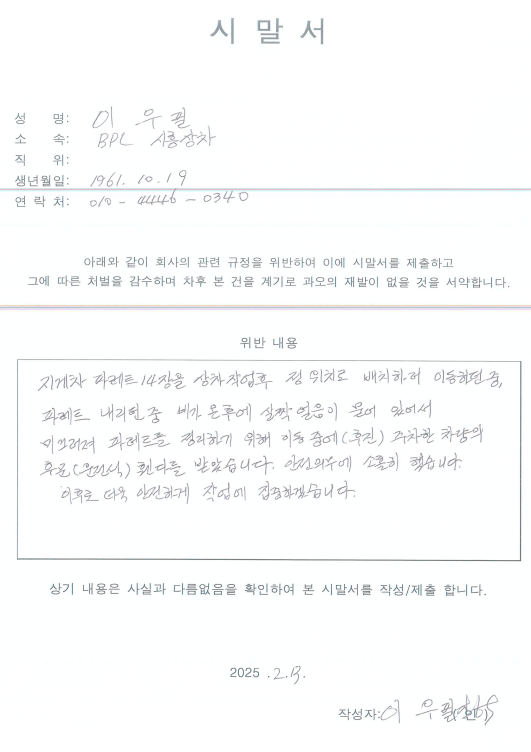 시 말 서
성 명: 이 우 필
소 속: BPL 시흥상차
직 위:
생년월일: 1961. 10. 19
연 락 처: 010 - 4446 - 0340
아래와 같이 회사의 관련 규정을 위반하여 이에 시말서를 제출하고
그에 따른 처벌을 감수하며 차후 본 건을 계기로 과오의 재발이 없을 것을 서약합니다.
위반 내용
지게차 파레트 14장을 상차작업후 정 위치로 배치하러 이동하던 중,
파레트 내리던 중 비가 온후에 살짝 얼음이 얼어 있어서
미끄러져 파레트를 정리하기 위해 이동 중에 (후진) 주차한 차량의
후론(운전석) 휀다를 받았습니다. 안전의무에 소홀히 했습니다.
이후로 더욱 안전하게 작업에 집중하겠습니다.
상기 내용은 사실과 다름없음을 확인하여 본 시말서를 작성/제출 합니다.
2025 . 2. 13.
작성자: 이 우 필